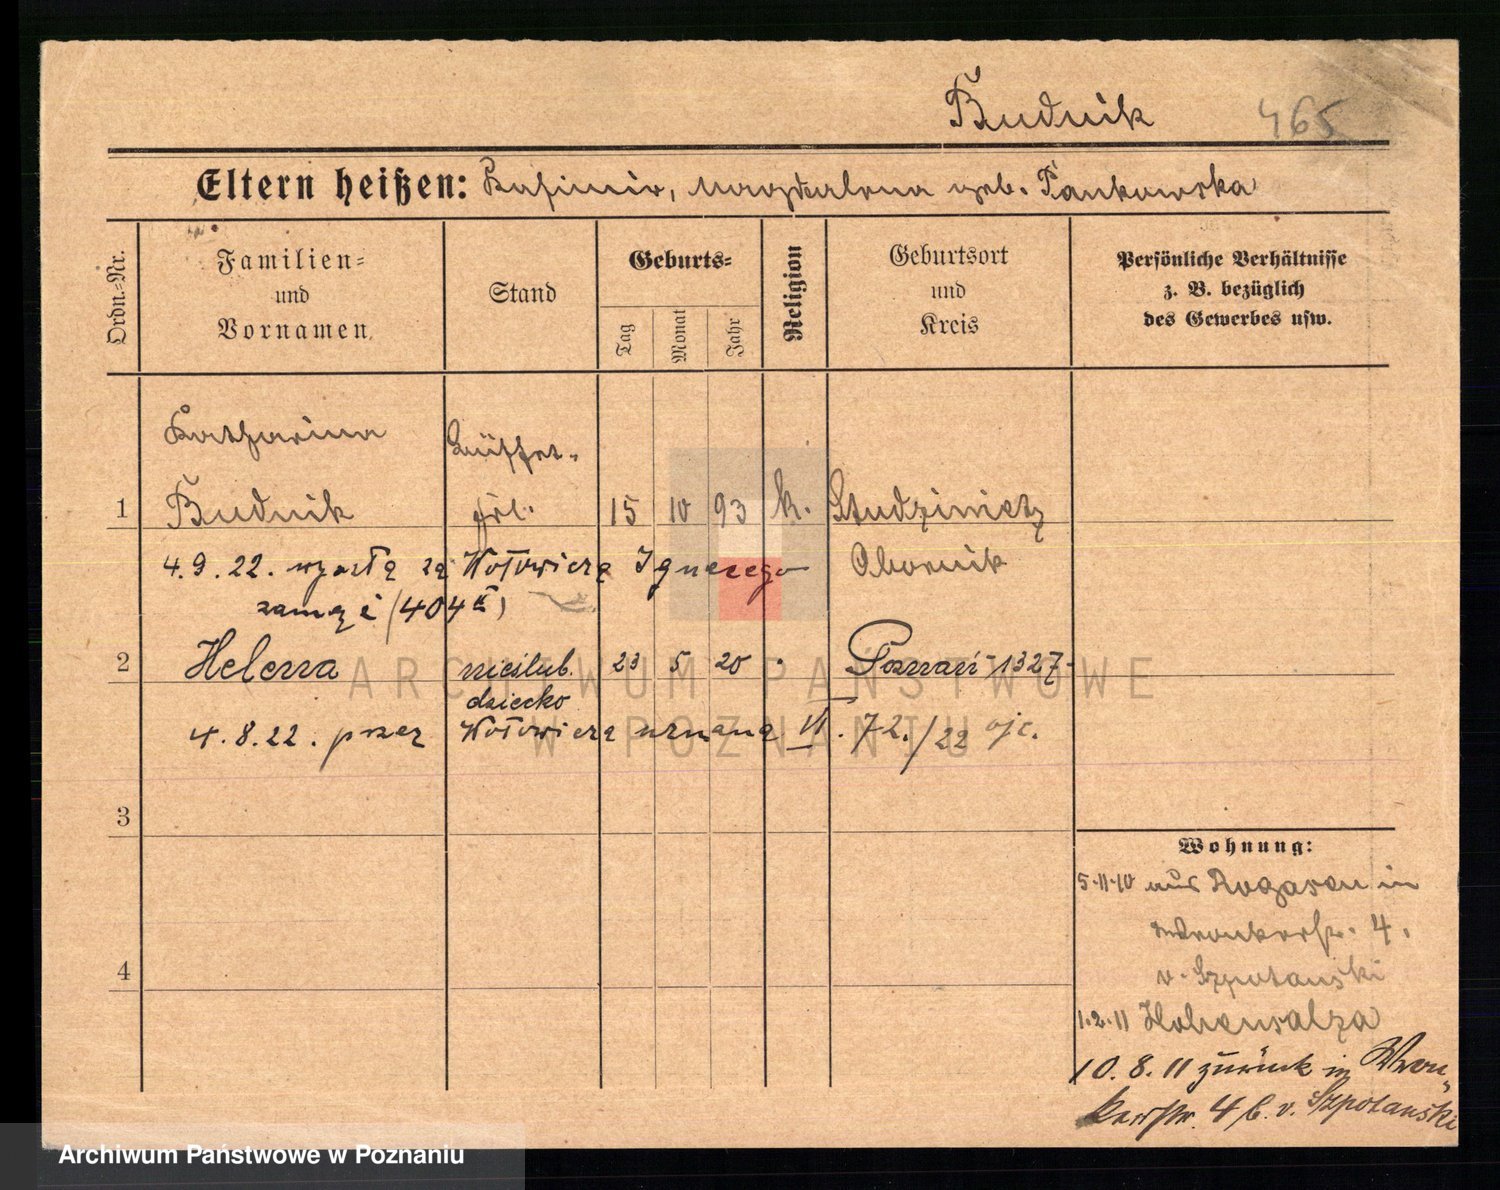 Budnik 465
Eltern heißen: Kasimir, Magdalena geb. Pankowska
Ordn.-Nr.
Familien-
und
Vornamen
Stand
Geburts-
Tag
Monat
Jahr
Religion
Geburtsort
und
Kreis
Persönliche Verhältnisse
z. B. bezüglich
des Gewerbes usw.
Katharina Büffet-
1 Budnik frl. 15 10 93 k. Studzinietz
Obornik
4.9.22. wyszła za Wołowicza Ignacego
zamąż (404
2 Helena nieślub. 23 5 20 Poznań 1327
dziecko
4.8.22. przez Wołowicza uznana VI. 72./22 ojc.
3
4
Wohnung:
5.11.10 aus Rogasen in
Wronkerstr. 4.
v. Szpotanski
1.2.11 Hohensalza
10.8.11 zurück in Wron-
kerstr. 4 b. v. Szpotański
ARCHIWUM PAŃSTWOWE
W POZNANIU
Archiwum Państwowe w Poznaniu